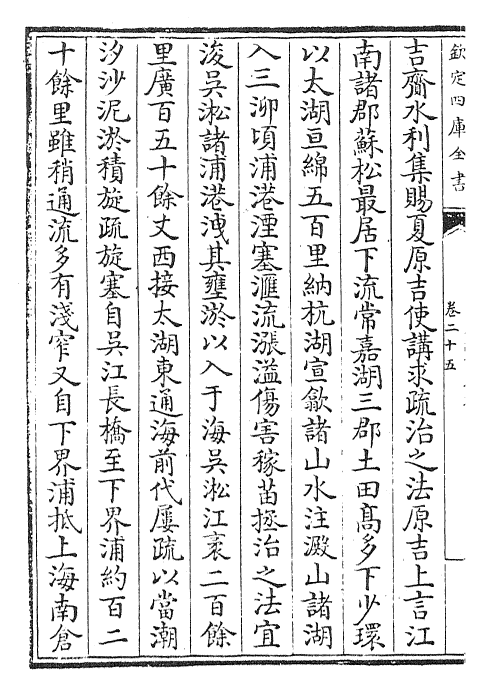 欽定四庫全書
卷二十五
吉齎水利集賜夏原吉使講求疏治之法原吉上言江
南諸郡蘇松最居下流常嘉湖三郡土田髙多下少環
以太湖亘綿五百里納杭湖宣歙諸山水注澱山諸湖
入三泖頃浦港湮塞滙流漲溢傷害稼苗拯治之法宜
浚吳淞諸浦港洩其壅淤以入于海吳淞江袤二百餘
里廣百五十餘丈西接太湖東通海前代屢疏以當潮
汐沙泥淤積旋疏旋塞自吳江長橋至下界浦約百二
十餘里雖稍通流多有淺窄又自下界浦抵上海南倉